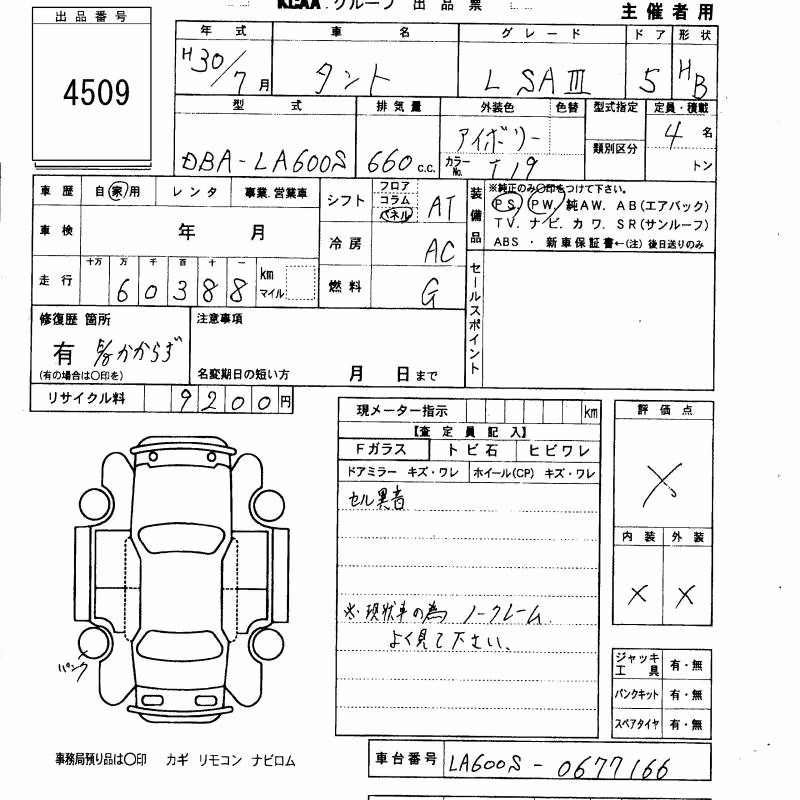 KCAA グループ 出品票
主催者用
出品番号
4509
年式 車名 グレード ドア 形状
H30/7月 タント L SAⅢ 5 HB
型式 排気量 外装色 色替 型式指定 定員・積載
DBA-LA600S 660c.c. アイボリー 4名
カラーNo. T19 類別区分 トン
車歴 自家用 レンタ 事業.営業車
車検 年 月
走行 十万 万 千 百 十 一
60388 km マイル
シフト フロア コラム パネル AT
冷房 AC
燃料 G
装備品 ※純正のみ〇印をつけて下さい。
PS. PW. 純AW. AB(エアバック)
TV. ナビ. カワ. SR(サンルーフ)
ABS ・ 新車保証書←(注) 後日送りのみ
セールスポイント
修復歴 箇所
有 E/gかからず
(有の場合は〇印を)
注意事項
名変期日の短い方 月 日まで
リサイクル料 9200円
現メーター指示 km
【査定員記入】
Fガラス トビ石 ヒビワレ
ドアミラー キズ・ワレ ホイール(CP) キズ・ワレ
セル異音
※.現状車の為 ノークレーム.
よく見て下さい、
評価点
×
内装 外装
× ×
パンク
ジャッキ工具 有・無
パンクキット 有・無
スペアタイヤ 有・無
事務局預り品は〇印 カギ リモコン ナビロム
車台番号 LA600S - 0677166